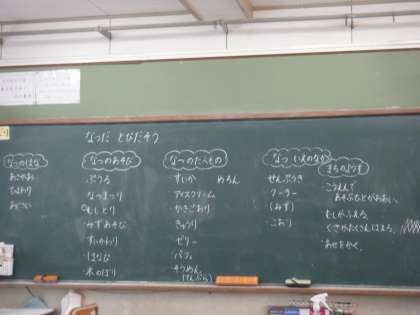 なつだ とびだそう
なつのはな
あさがお
ひまわり
あじさい
なつのあそび
ぷうる
なつまつり
むしとり
みずあそび
すいかわり
はなび
木のぼり
なつのたべもの
すいか めろん
アイスクリーム
かきごおり
きゅうり
ゼリー
パフェ
そうめん
なつ いえのなか
せんぷうき
クーラー
(みず)
こおり
まちのようす
こうえんで
あそぶひとがおおい。
むしがふえる。
くさがたくさんはえる。
あせをかく。